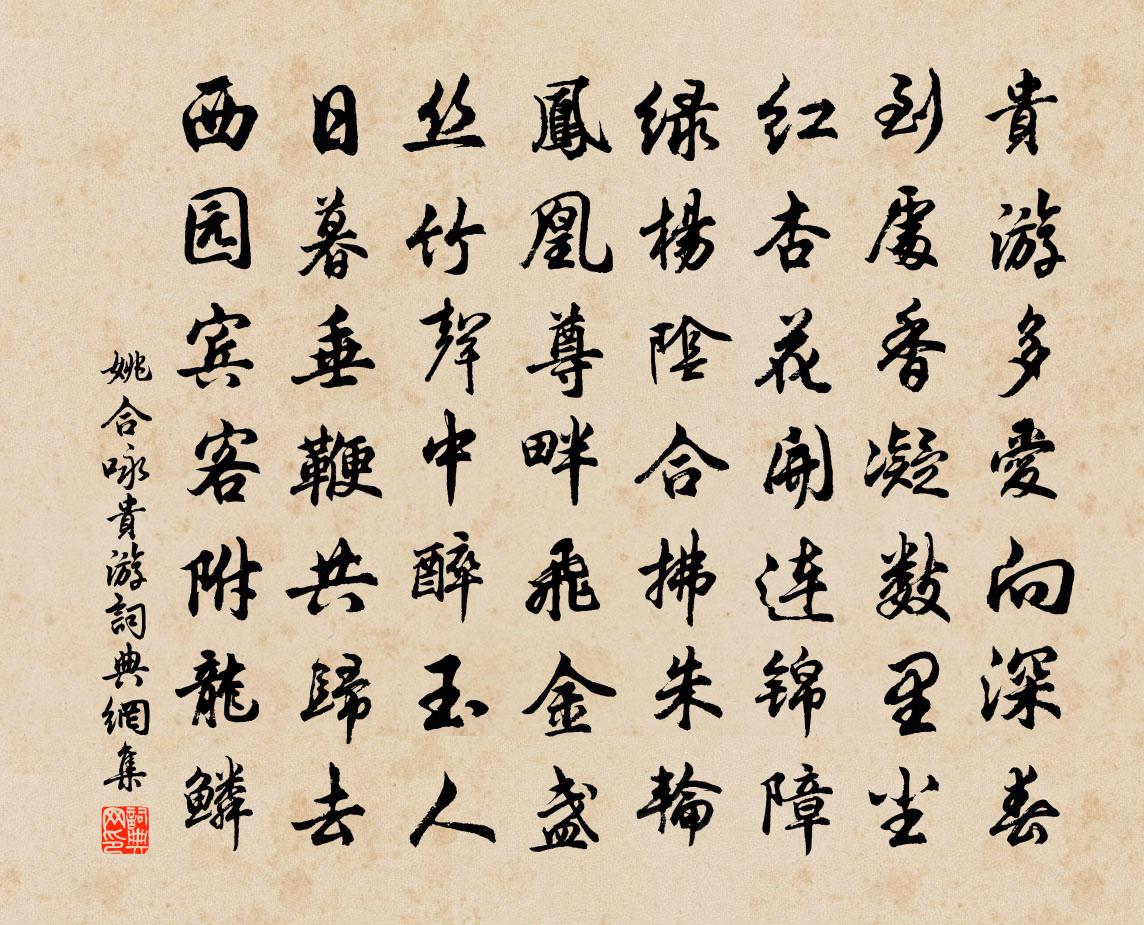 貴游多愛向深春
到處香凝數里尘
红杏花開连锦障
绿楊陰合拂朱輪
鳳凰尊畔飛金盏
丝竹聲中醉玉人
日暮垂鞭共歸去
西园宾客附龍鱗
姚合咏貴游詞典網集
詞典网印